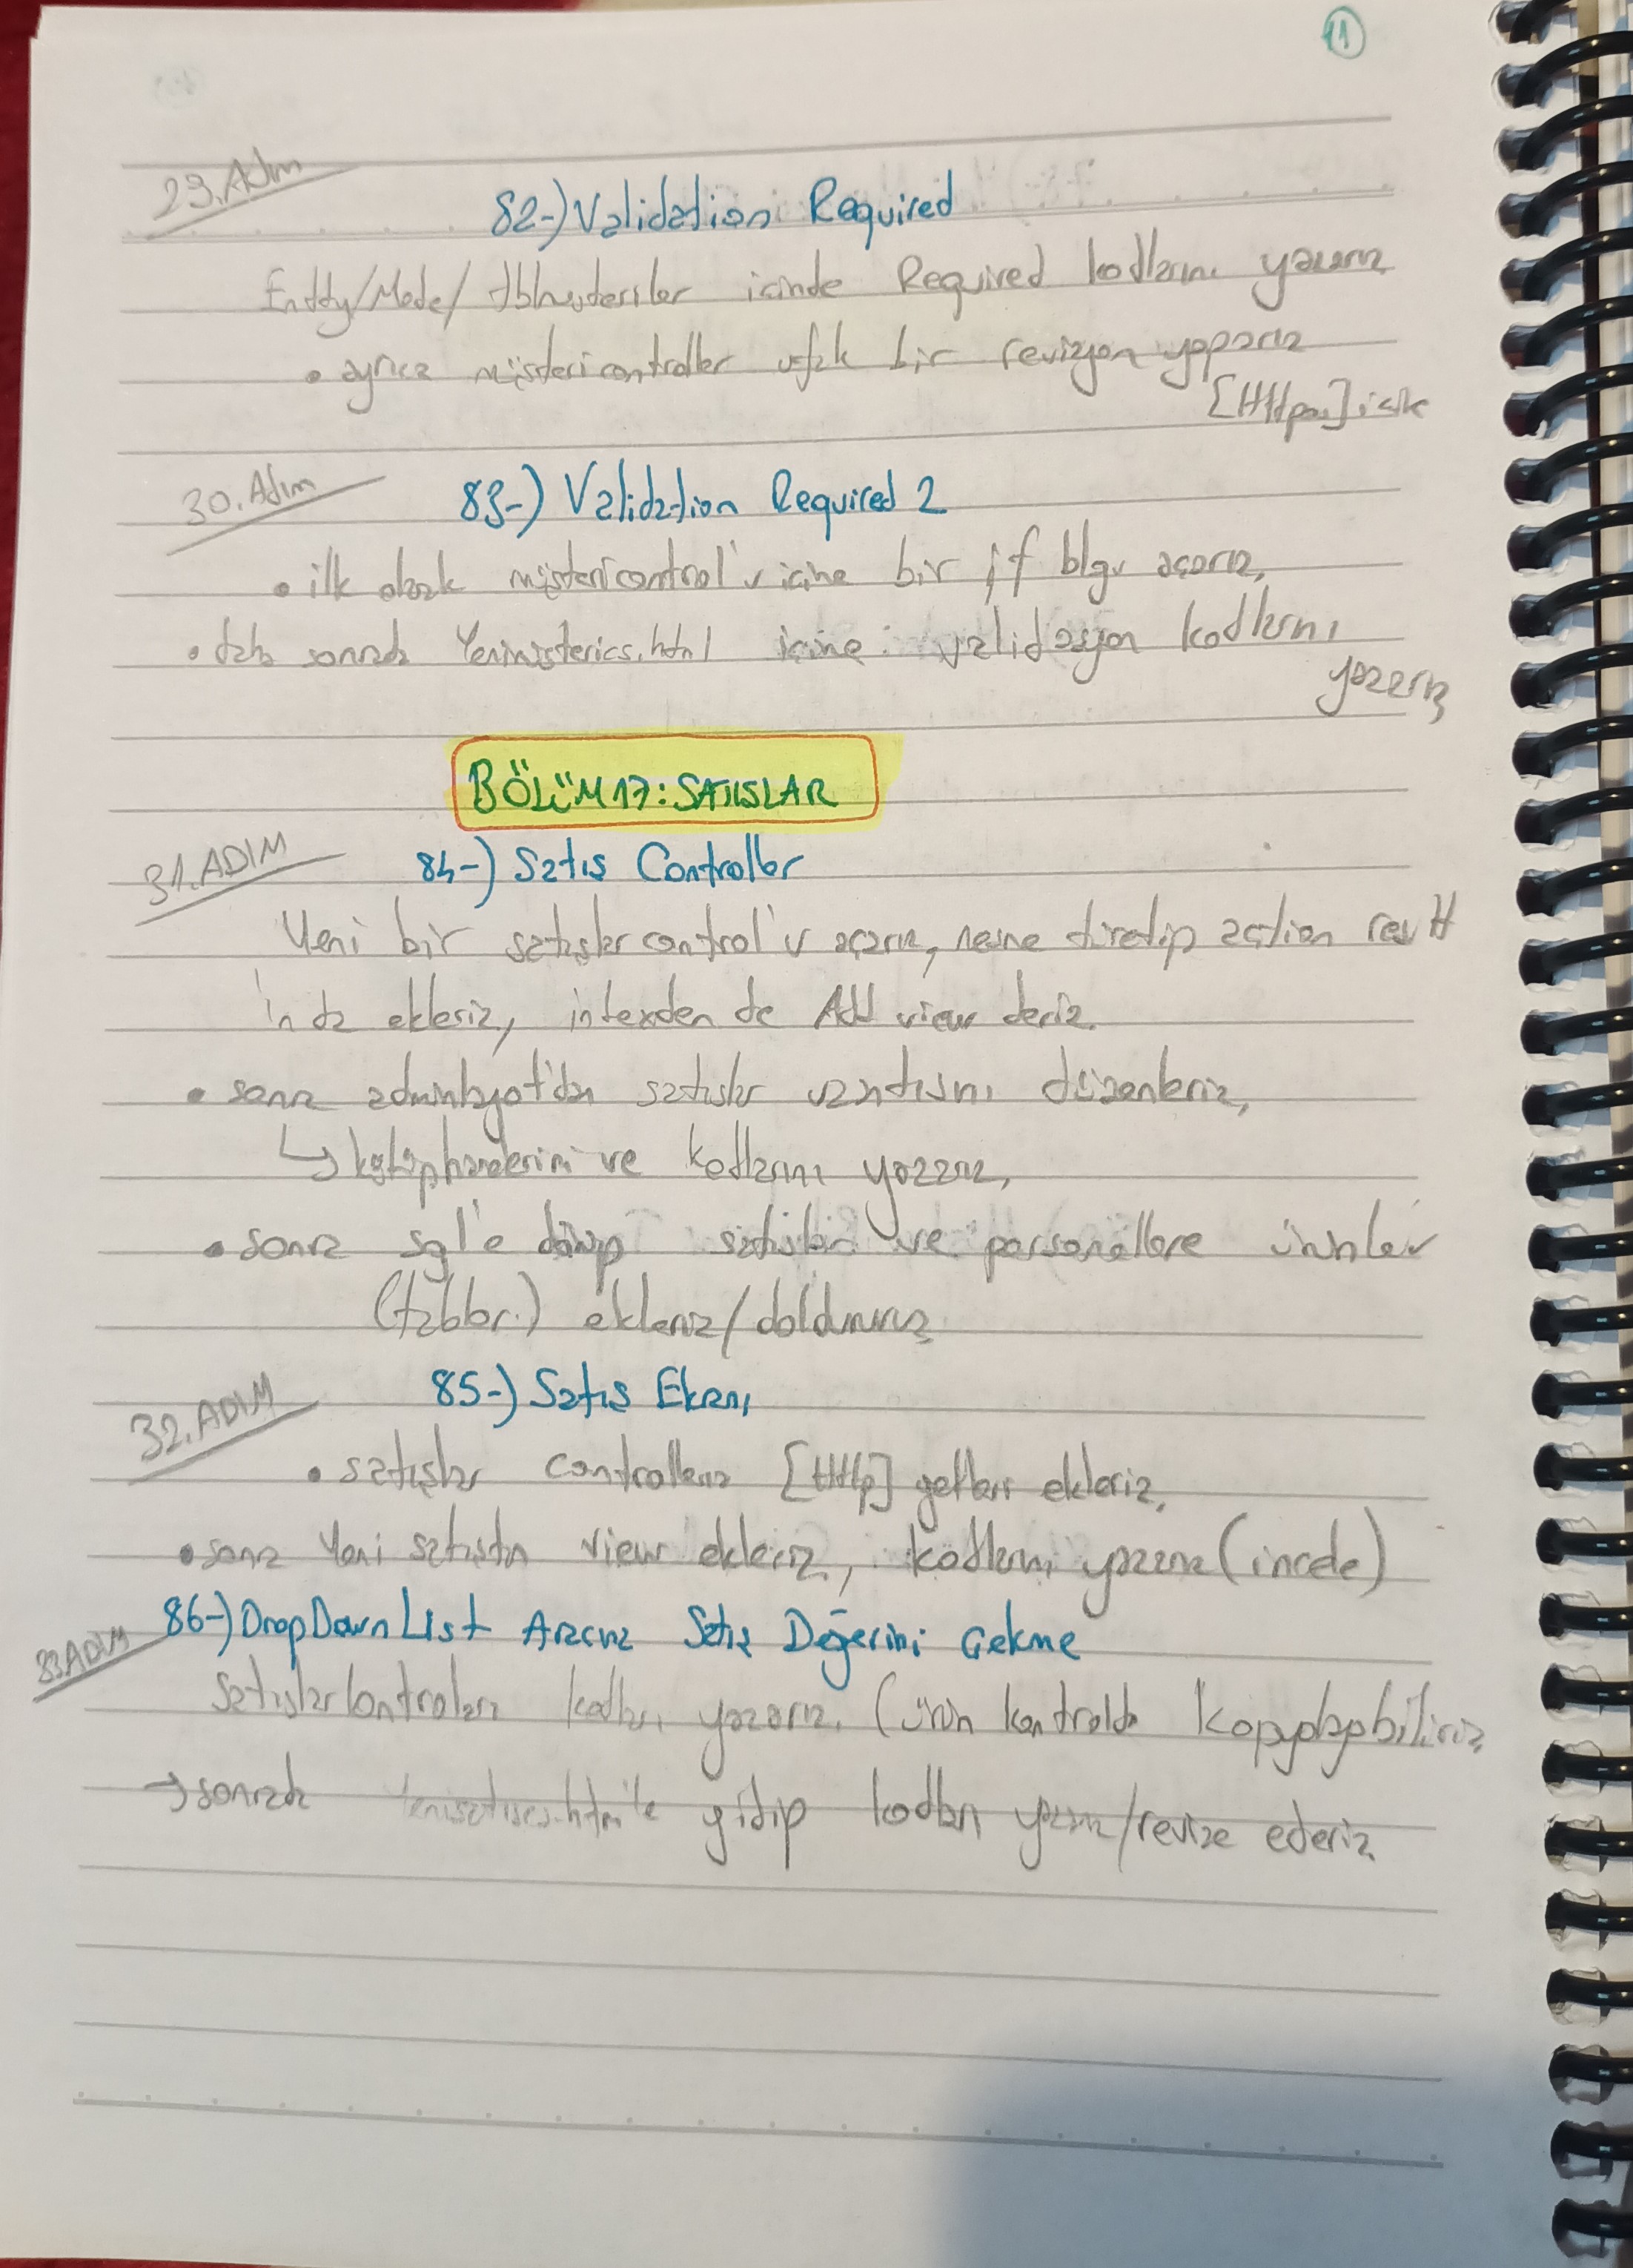 11
29.Adım
82-) Validation Required
Entity/Model/tblmusteriler icinde Required kodlarını yazarız
• ayrıca müştericontroller ufak bir revizyon yaparız
30.Adım
83-) Validation Required 2
• ilk olarak müştericontrol'u icine bir if blgu açarız,
• daha sonrada Yenimüsterics.html icine validasyon kodlarını
yazarız
BÖLÜM 17: SATIŞLAR
31.ADIM
84-) Satış Controller
Yeni bir satışlar control'u açarız, nesne türetip action result
'ın da ekleriz, intexden de Add view deriz.
• sonra adminlayot'dan satışlar uzantısını düzenleriz,
↳ kütüphanelerini ve kodlarını yazarız,
• sonra sql'e dönüp satışlar ve personellere ürünler
(tablolar.) ekleriz/doldururuz
32.ADIM
85-) Satış Ekranı
• satışlar controllera [Http] getları ekleriz,
• sonra Yeni satıştan view ekleriz, kodlarını yazarız (incele)
33.ADIM
86-) DropDownList Aracına Satış Değerini Çekme
Satışlarkontrolera kodları yazarız. (ürün kontrolda kopyalayabiliriz
→ sonrada Yenisatıscs.html'e gidip kodları yazarız/revize ederiz